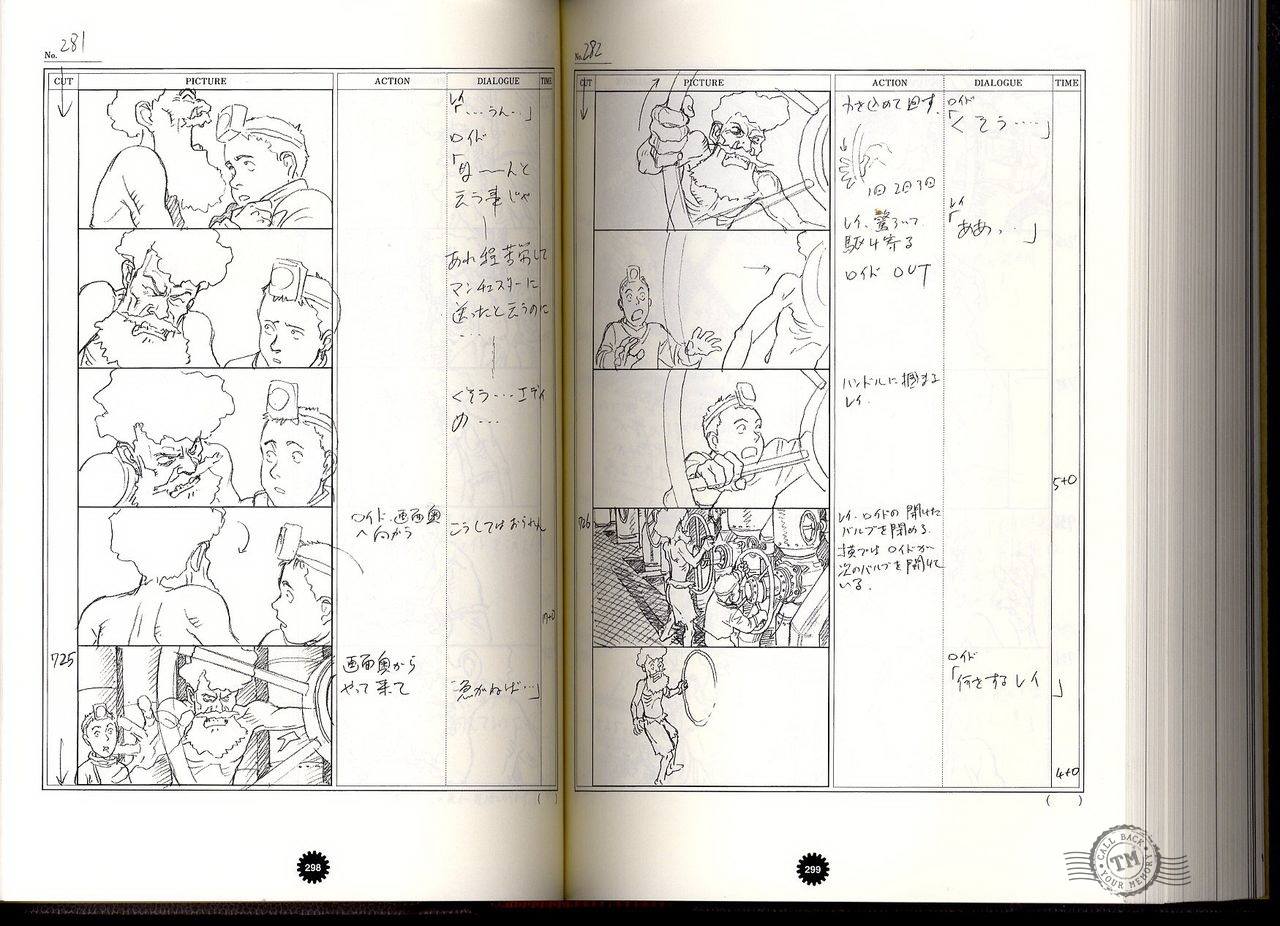 No. 281
CUT PICTURE ACTION DIALOGUE TIME
レイ
「‥‥うん‥」
ロイド
「
云う事じゃ
あれ程苦労して
マンチェスターに
送ったと云うのに
‥‥
くそう‥‥エディ
め‥‥
ロイド、画面奥
へ向かう
こうしてはおられん
725
画面奥から
やって来て
急がねば‥」
298
No. 282
CUT PICTURE ACTION DIALOGUE TIME
力を込めて回す.
ロイド
「くそう‥‥」
1回 2回 3回
レイ、驚ろいて
駆け寄る
レイ
「ああっ‥」
ロイド OUT
ハンドルに掴まる
レイ.
5+0
726
レイ、ロイドの開けた
バルブを閉める.
横では ロイドが
次のバルブを開けて
いる.
ロイド
「何をするレイ」
4+0
( )
( )
299
CALL BACK
TM
YOUR MEMORY